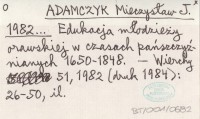 ADAMCZYK Mieczysław J.
1982... Edukacja młodzieży
orawskiej w czasach pańszczyź-
nianych 1650-1848. — Wierchy
51, 1982 (druk 1984):
26-50, il.